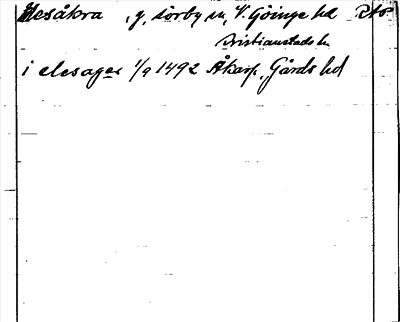 Elesåkra, g, Sörby sn, V. Göinge hd RAP
Kristianstads län
i elesager 1/9 1492 Åkarp, Gärds hd